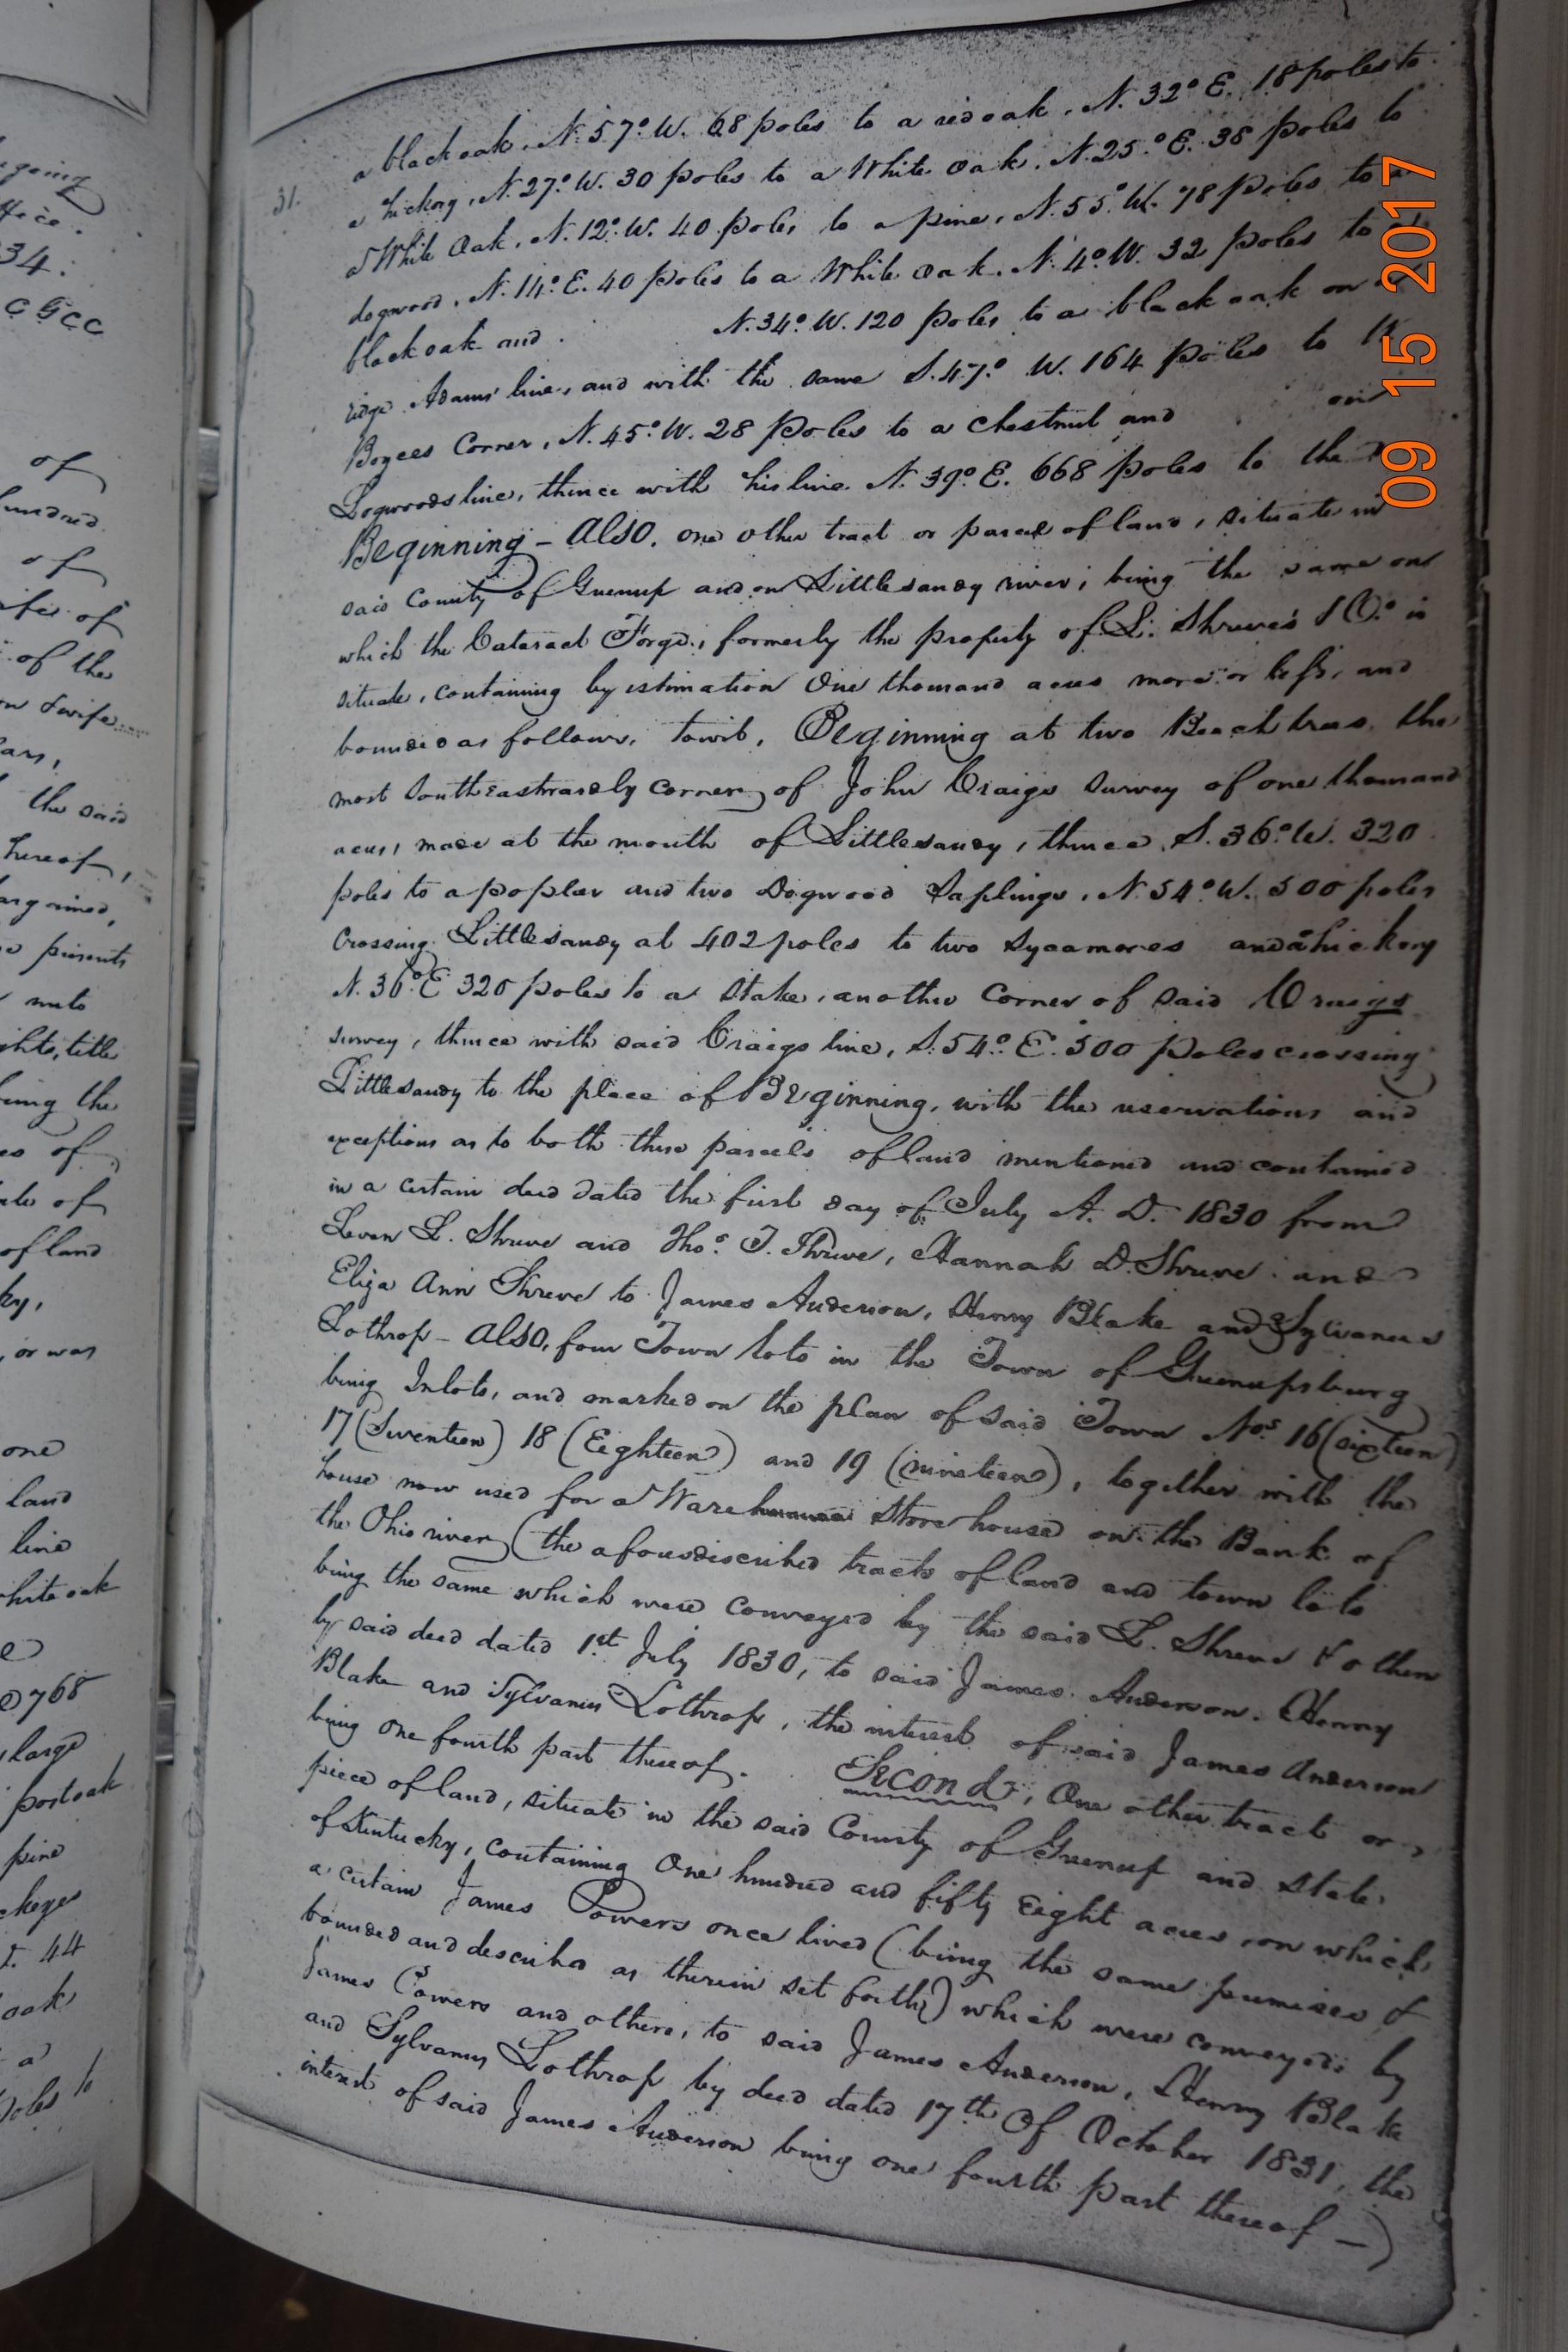 31.
a black oak, N. 57° W. 68 poles to a red oak, N. 32° E. 18 poles to
a hickory, N. 27° W. 30 poles to a White oak, N. 25° E. 38 poles to
a White Oak, N. 12° W. 40 poles to a pine, N. 55° W. 78 poles to a
dogwood, N. 14° E. 40 poles to a White oak, N. 4° W. 32 poles to
black oak and N. 34° W. 120 poles to a black oak on
ridge Adams' line, and with the same S. 47° W. 164 poles to
Boyees Corner, N. 45° W. 28 poles to a Chestnut and on
Logwoods line, thence with his line N. 39° E. 668 poles to the
Beginning – Also, one other tract or parcel of land, situate in
said County of Greenup and on Littlesandy river, being the same on
which the Cataract Forge, formerly the property of L. Shreve's & Co. is
situate, containing by estimation One thousand acres more or less, and
bounded as follows, towit, Beginning at two Beech trees, the
most Southeastwardly corner of John Craigs survey of one thousand
acres, made at the mouth of Littlesandy, thence, S. 36° W. 320
poles to a poplar and two Dogwood Saplings, N. 54° W. 500 poles
Crossing Littlesandy at 402 poles to two Sycamores and a hickory
N. 36° E 320 poles to a Stake, another Corner of said Craigs
survey, thence with said Craigs line, S. 54° E. 500 poles crossing
Littlesandy to the place of Beginning, with the reservations and
exceptions as to both these parcels of land mentioned and contained
in a certain deed dated the first day of July A. D. 1830 from
Leven L. Shreve and Thos. T. Shreve, Hannah D. Shreve and
Eliza Ann Shreve to James Anderson, Henry Blake and Sylvanus
Lothrop – Also, four Town lots in the Town of Greenupsburg
being Inlots, and marked on the plan of said Town Nos. 16 (sixteen)
17 (Seventeen) 18 (Eighteen) and 19 (nineteen), together with the
house now used for a Ware Store house on the Bank of
the Ohio river (the aforedescribed tracts of land and town lots
being the same which were conveyed by the said L. Shreve & others
by said deed dated 1st July 1830, to said James Anderson, Henry
Blake and Sylvanus Lothrop, the interest of said James Anderson
being one fourth part thereof. Second, One other tract or
piece of land, situate in the said County of Greenup and State
of Kentucky, containing One hundred and fifty Eight acres, on which
a certain James Powers once lived (being the same premises &
bounded and described as therein set forth) which were conveyed by
James Powers and others, to said James Anderson, Henry Blake
and Sylvanus Lothrop by deed dated 17th of October 1831, the
interest of said James Anderson being one fourth part thereof —)
34.
of
hundred
of
of
of the
the said
hereof,
presents
unto
title
the
of
of
of land
or was
one
land
line
white oak
768
large
post oak
pine
44
oak
a
poles to
09 15 2017